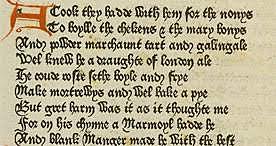 A Cook they hadde with hem for the nonys
To boylle the chekens & the mary bonys
And powder marchaunt tart and galingale
Wel knew he a draughte of london ale
He coude roste sethe boyle and frye
Make mortrewys and wel bake a pye
But gret harm was it as it thoughte me
For on his chynne a Marmoyl hadde he
And blank Manger made he with the best